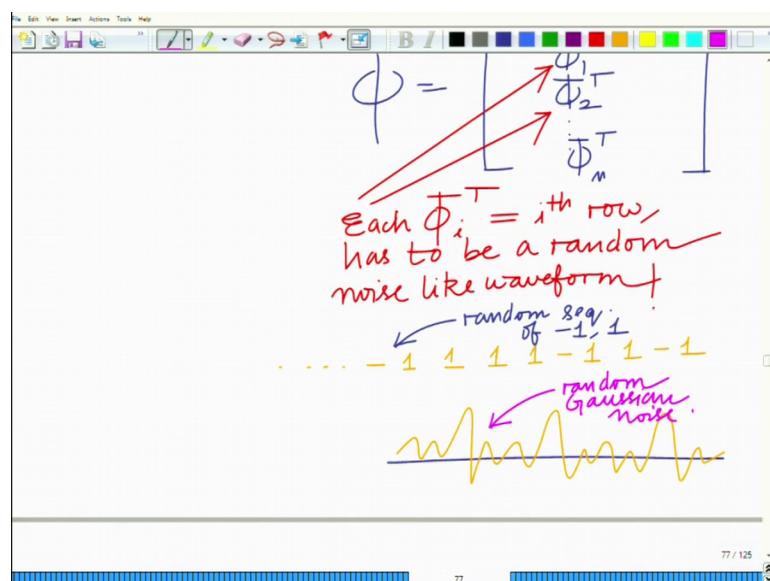 File Edit View Insert Actions Tools Help
B I
Φ̅₁
ϕ = Φ̅₂ᵀ
⋮
Φ̅ₙᵀ
Each Φ̅ᵢᵀ = iᵗʰ row,
has to be a random
noise like waveform!
random seq.
of -1, 1
.... -1 1 1 1 -1 1 -1
random
Gaussian
noise.
77 / 125
77